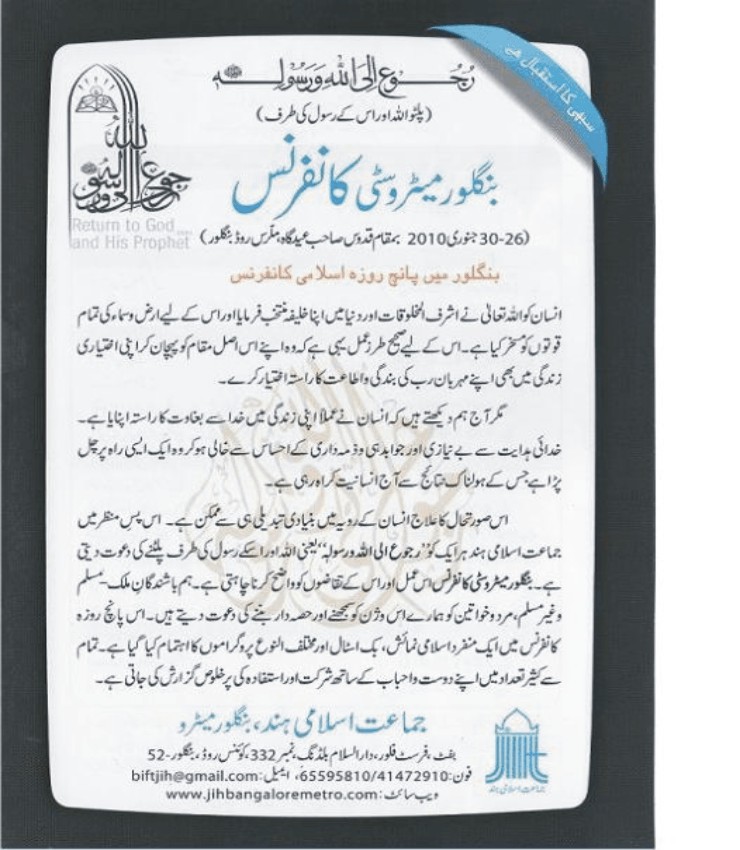 سبھی کا استقبال ہے
رجوع الی اللہ ورسولہ ﷺ
(پلٹو اللہ اور اس کے رسول کی طرف)
رجوع الی اللہ ورسولہ
Return to God
and His Prophet
بنگلور میٹرو سٹی کانفرنس
(26-30 جنوری 2010 بمقام قدوس صاحب عیدگاہ، ملرس روڈ بنگلور)
بنگلور میں پانچ روزہ اسلامی کانفرنس
انسان کو اللہ تعالیٰ نے اشرف المخلوقات اور دنیا میں اپنا خلیفہ منتخب فرمایا اور اس کے لیے ارض وسماء کی تمام
قوتوں کو مسخر کیا ہے۔ اس کے لیے صحیح طرز عمل یہی ہے کہ وہ اپنے اس اصل مقام کو پہچان کر اپنی اختیاری
زندگی میں بھی اپنے مہربان رب کی بندگی واطاعت کا راستہ اختیار کرے۔
مگر آج ہم دیکھتے ہیں کہ انسان نے عملاً اپنی زندگی میں خدا سے بغاوت کا راستہ اپنایا ہے۔
خدائی ہدایت سے بے نیازی اور جوابدہی وذمہ داری کے احساس سے خالی ہو کر وہ ایک ایسی راہ پر چل
پڑا ہے جس کے ہولناک نتائج سے آج انسانیت کراہ رہی ہے۔
اس صورتحال کا علاج انسان کے رویہ میں بنیادی تبدیلی ہی سے ممکن ہے۔ اس پس منظر میں
جماعت اسلامی ہند ہر ایک کو ”رجوع الی اللہ ورسولہ“ یعنی اللہ اور اسکے رسول کی طرف پلٹنے کی دعوت دیتی
ہے۔ بنگلور میٹرو سٹی کانفرنس اس عمل اور اس کے تقاضوں کو واضح کرنا چاہتی ہے۔ ہم باشندگانِ ملک-مسلم
وغیر مسلم، مرد وخواتین کو ہمارے اس وژن کو سمجھنے اور حصہ دار بننے کی دعوت دیتے ہیں۔ اس پانچ روزہ
کانفرنس میں ایک منفرد اسلامی نمائش، بک اسٹال اور مختلف النوع پروگراموں کا اہتمام کیا گیا ہے۔ تمام
سے کثیر تعداد میں اپنے دوست واحباب کے ساتھ شرکت اور استفادہ کی پرخلوص گزارش کی جاتی ہے۔
جماعت اسلامی ہند، بنگلور میٹرو
بفٹ، فرسٹ فلور، دارالسلام بلڈنگ، نمبر 332، کوئنس روڈ، بنگلور-52
فون: 65595810/41472910، ایمیل: biftjih@gmail.com
ویب سائٹ: www.jihbangaloremetro.com
جماعت اسلامی ہند